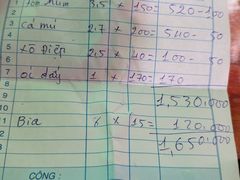 3,5 × 150 = 520 - 150
3 Cá mú 2,7 × 200 = 540 - 50
5 Sò Điệp 2,5 × 40 = 100 - 50
7 ốc đáy 1 × 170 = 170
8
9 1,530.000
10
11 Bia × 15 = 120.000
12 1,650.000
CỘNG: